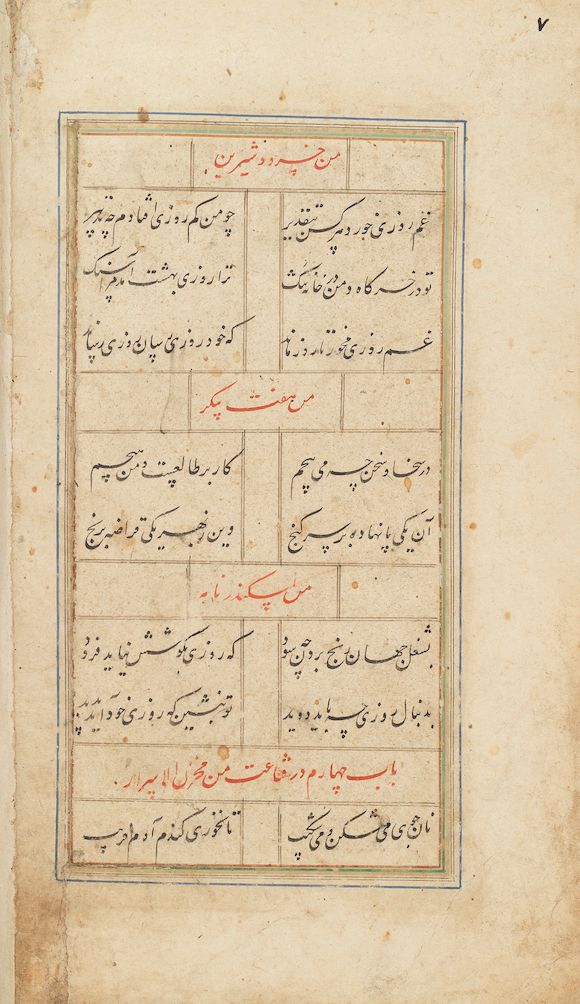 ٧
من خسرو و شیرین
غم روزی خورد هر کس بتقدیر چو من کم روزی افتادم چه تدبیر
تو در خرگاه و من در خانه تنگ ترا روزی بهشت آمد مرا سنگ
غم روزی مخور تا روز ماند که خود روزی رسان روزی رساند
من هفت پیکر
در سخا و سخن چه می پیچم کار بر طالعست و من هیچم
آن یکی پا نهاده بر سر گنج وین ز بهر یکی قراضه برنج
من اسکندر نامه
بشغل جهان رنج بردن چه سود که روزی بکوشش نیاید فزود
بدنبال روزی چه باید دوید تو بنشین که روزی خود آید پدید
باب چهارم در قناعت من مخزن الاسرار
نان جوی می شکن و می شکیب تا نخوری گندم آدم فریب